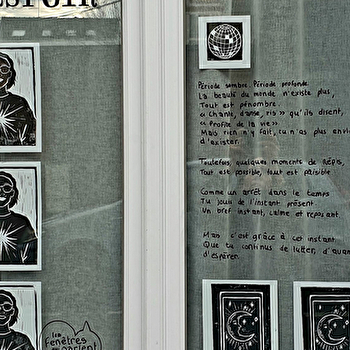 ESPOIR
Période sombre. Période profonde.
La beauté du monde n'existe plus,
Tout est pénombre.
« Chante, danse, ris » qu'ils disent,
« Profite de la vie »
Mais rien n'y fait, tu n'as plus envie
d'exister.
Toutefois, quelques moments de répis,
Tout est possible, tout est paisible
Comme un arrêt dans le temps
Tu jouis de l'instant présent
Un bref instant, calme et reposant.
Mais c'est grâce à cet instant
Que tu continus de lutter, d'avan
d'espérer.
les
Fenêtres
qui parlent